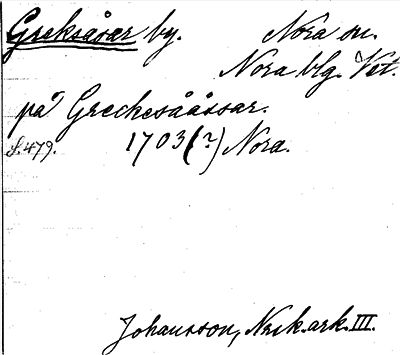 Greksåsar by. Nora sn.
Nora blg. Vst.
på Greckesååssar.
S. 479. 1703(?) Nora.
Johansson, Nork. ark. III.